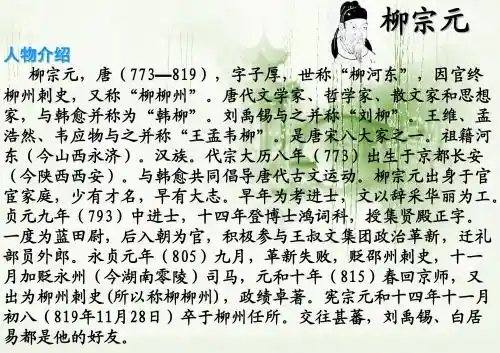 柳宗元
人物介绍
柳宗元，唐（773—819），字子厚，世称“柳河东”，因官终
柳州刺史，又称“柳柳州”。唐代文学家、哲学家、散文家和思想
家，与韩愈并称为“韩柳”。刘禹锡与之并称“刘柳”。王维、孟
浩然、韦应物与之并称“王孟韦柳”。是唐宋八大家之一。祖籍河
东（今山西永济）。汉族。代宗大历八年（773）出生于京都长安
（今陕西西安）。与韩愈共同倡导唐代古文运动。柳宗元出身于官
宦家庭，少有才名，早有大志。早年为考进士，文以辞采华丽为工。
贞元九年（793）中进士，十四年登博士鸿词科，授集贤殿正字。
一度为蓝田尉，后入朝为官，积极参与王叔文集团政治革新，迁礼
部员外郎。永贞元年（805）九月，革新失败，贬邵州刺史，十一
月加贬永州（今湖南零陵）司马，元和十年（815）春回京师，又
出为柳州刺史(所以称柳柳州)，政绩卓著。宪宗元和十四年十一月
初八（819年11月28日）卒于柳州任所。交往甚蕃，刘禹锡、白居
易都是他的好友。